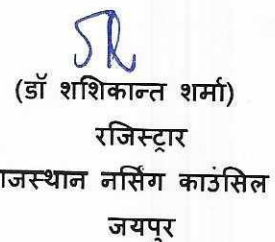 (डॉ शशिकान्त शर्मा)
रजिस्ट्रार
ाजस्थान नर्सिंग काउंसिल
जयपुर